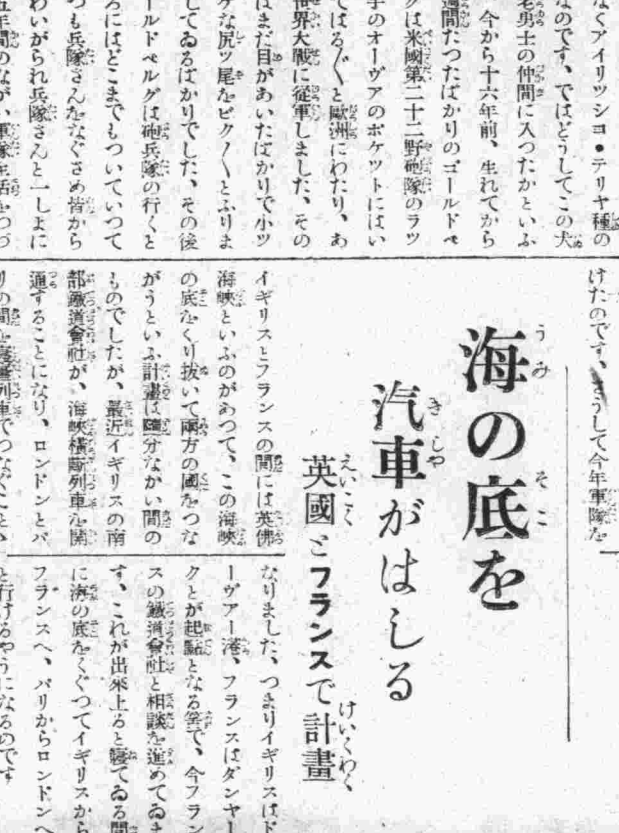 なくアイリツシヨ・テリヤ種の
なのです、ではどうしてこの犬
老勇士の仲間に入つたかといふ
今から十六年前、生れてから
週間たつたばかりのゴールドベ
グは米國第二十二野砲隊のラツ
手のオーヴアのポケツトにはい
てはる〴〵と歐洲にわたり、あ
世界大戰に從軍しました、その
はまだ目があいたばかりで小ツ
ケな尻ツ尾をピク〳〵とふりま
してゐるばかりでした、その後
ールドベルグは砲兵隊の行くと
ろにはどこまでもついていつて
つも兵隊さんをなぐさめ皆から
わいがられ兵隊さんと一しよに
五年間のながい軍隊生活をつづ
けたのです、さうして今年軍隊を
海の底を
うみ そこ
汽車がはしる
きしや
英國とフランスで計畫
えいこく けいくわく
イギリスとフランスの間には英佛
海峽といふのがあつて、この海峽
の底をくり拔いて兩方の國をつな
がうといふ計畫は隨分ながい間の
ものでしたが、最近イギリスの南
部鐵道會社が、海峽橫斷列車を開
通することになり、ロンドンとパ
リの間を寢臺列車でつなぐことに
なりました、つまりイギリスはド
ーヴアー港、フランスはダンケー
クとが起點となる筈で、今フラン
スの鐵道會社と相談を進めてゐま
す、これが出來上ると寢てゐる間
に海の底をくぐつてイギリスから
フランスへ、パリからロンドンへ
と行けるやうになるのです